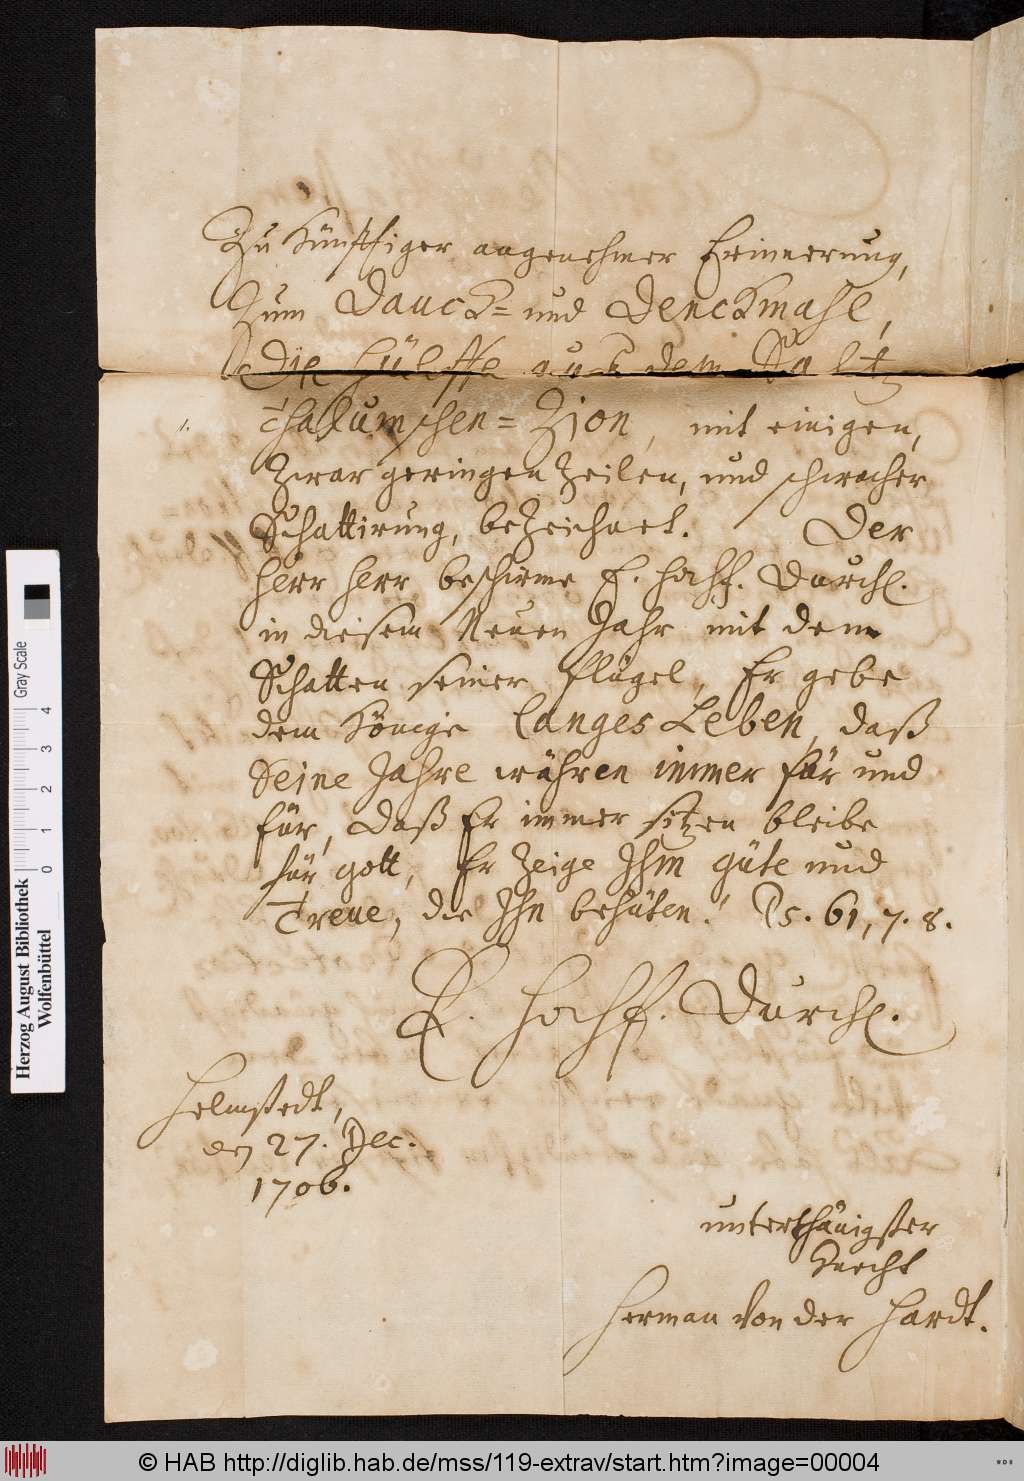 Zu Künfftiger angenehmer Erinnerung,
Zum Danck- und Denckmahl,
Die Hülffe aus dem Saltz
thalumschen-Zion, mit einigen,
zwar geringen Zeilen, und schwacher
Schattirung, bezeichnet. Der
Herr Herr beschirme E. Hochf. Durchl.
in diesem Neuen Jahr mit dem
Schatten seiner Flügel, Er gebe
dem Könige langes Leben, daß
Seine Jahre währen immer für und
für, Daß Er immer sitzen bleibe
für Gott, Er zeige Ihm Güte und
Treue, die Ihn behüten! Ps. 61, 7. 8.
E. Hochf. Durchl.
Helmstedt,
den 27. Dec.
1706.
unterthänigster
Knecht
Herman von der Hardt.
Herzog August Bibliothek
Wolfenbüttel
0 1 2 3 4
Gray Scale
© HAB http://diglib.hab.de/mss/119-extrav/start.htm?image=00004